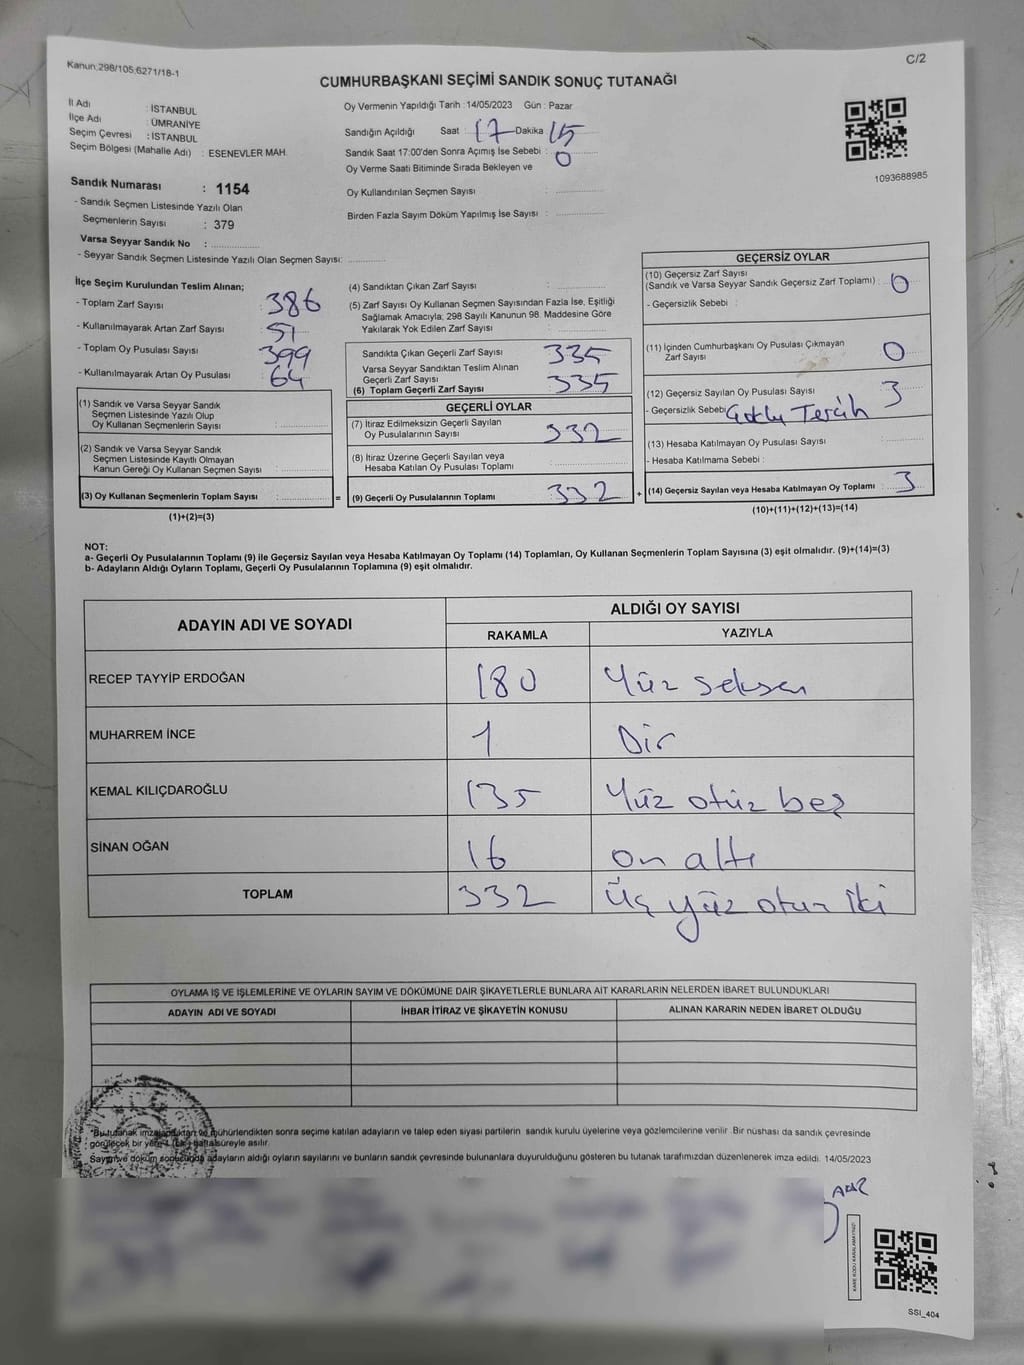 Kanun:298/105:6271/18-1
C/2
CUMHURBAŞKANI SEÇİMİ SANDIK SONUÇ TUTANAĞI
İl Adı : İSTANBUL
İlçe Adı : ÜMRANİYE
Seçim Çevresi : İSTANBUL
Seçim Bölgesi (Mahalle Adı) : ESENEVLER MAH.
Sandık Numarası : 1154
- Sandık Seçmen Listesinde Yazılı Olan
Seçmenlerin Sayısı : 379
Varsa Seyyar Sandık No :
- Seyyar Sandık Seçmen Listesinde Yazılı Olan Seçmen Sayısı:
Oy Vermenin Yapıldığı Tarih : 14/05/2023 Gün : Pazar
Sandığın Açıldığı Saat : 17 Dakika 15
Sandık Saat 17:00'den Sonra Açımış İse Sebebi :
Oy Verme Saati Bitiminde Sırada Bekleyen ve 0
Oy Kullandırılan Seçmen Sayısı :
Birden Fazla Sayım Döküm Yapılmış İse Sayısı :
1093688985
İlçe Seçim Kurulundan Teslim Alınan;
- Toplam Zarf Sayısı 386
- Kullanılmayarak Artan Zarf Sayısı 51
- Toplam Oy Pusulası Sayısı 399
- Kullanılmayarak Artan Oy Pusulası 64
(1) Sandık ve Varsa Seyyar Sandık
Seçmen Listesinde Yazılı Olup
Oy Kullanan Seçmenlerin Sayısı :
(2) Sandık ve Varsa Seyyar Sandık
Seçmen Listesinde Kayıtlı Olmayan
Kanun Gereği Oy Kullanan Seçmen Sayısı :
(3) Oy Kullanan Seçmenlerin Toplam Sayısı :
(1)+(2)=(3)
(4) Sandıktan Çıkan Zarf Sayısı :
(5) Zarf Sayısı Oy Kullanan Seçmen Sayısından Fazla İse, Eşitliği
Sağlamak Amacıyla; 298 Sayılı Kanunun 98. Maddesine Göre
Yakılarak Yok Edilen Zarf Sayısı :
Sandıkta Çıkan Geçerli Zarf Sayısı 335
Varsa Seyyar Sandıktan Teslim Alınan
Geçerli Zarf Sayısı
(6) Toplam Geçerli Zarf Sayısı 335
GEÇERLİ OYLAR
(7) İtiraz Edilmeksizin Geçerli Sayılan
Oy Pusulalarının Sayısı 332
(8) İtiraz Üzerine Geçerli Sayılan veya
Hesaba Katılan Oy Pusulası Toplamı
= (9) Geçerli Oy Pusulalarının Toplamı 332 +
GEÇERSİZ OYLAR
(10) Geçersiz Zarf Sayısı
(Sandık ve Varsa Seyyar Sandık Geçersiz Zarf Toplamı) : 0
- Geçersizlik Sebebi :
(11) İçinden Cumhurbaşkanı Oy Pusulası Çıkmayan
Zarf Sayısı 0
(12) Geçersiz Sayılan Oy Pusulası Sayısı 3
- Geçersizlik Sebebi Çoklu Tercih
(13) Hesaba Katılmayan Oy Pusulası Sayısı :
- Hesaba Katılmama Sebebi :
(14) Geçersiz Sayılan veya Hesaba Katılmayan Oy Toplamı 3
(10)+(11)+(12)+(13)=(14)
NOT:
a- Geçerli Oy Pusulalarının Toplamı (9) ile Geçersiz Sayılan veya Hesaba Katılmayan Oy Toplamı (14) Toplamları, Oy Kullanan Seçmenlerin Toplam Sayısına (3) eşit olmalıdır. (9)+(14)=(3)
b- Adayların Aldığı Oyların Toplamı, Geçerli Oy Pusulalarının Toplamına (9) eşit olmalıdır.
ADAYIN ADI VE SOYADI
ALDIĞI OY SAYISI
RAKAMLA YAZIYLA
RECEP TAYYİP ERDOĞAN 180 Yüz seksen
MUHARREM İNCE 1 Bir
KEMAL KILIÇDAROĞLU 135 Yüz otuz beş
SİNAN OĞAN 16 on altı
TOPLAM 332 Üç yüz otuz iki
OYLAMA İŞ VE İŞLEMLERİNE VE OYLARIN SAYIM VE DÖKÜMÜNE DAİR ŞİKAYETLERLE BUNLARA AİT KARARLARIN NELERDEN İBARET BULUNDUKLARI
ADAYIN ADI VE SOYADI İHBAR İTİRAZ VE ŞİKAYETİN KONUSU ALINAN KARARIN NEDEN İBARET OLDUĞU
*Bu tutanak imzalandıktan ve mühürlendikten sonra seçime katılan adayların ve talep eden siyasi partilerin sandık kurulu üyelerine veya gözlemcilerine verilir. Bir nüshası da sandık çevresinde
görülecek bir yere 1 (bir) hafta süreyle asılır.
Sayım ve döküm sonucunda adayların aldığı oyların sayılarını ve bunların sandık çevresinde bulunanlara duyurulduğunu gösteren bu tutanak tarafımızdan düzenlenerek imza edildi. 14/05/2023
KARE KODU KARALAMAYINIZ!
SSI_404